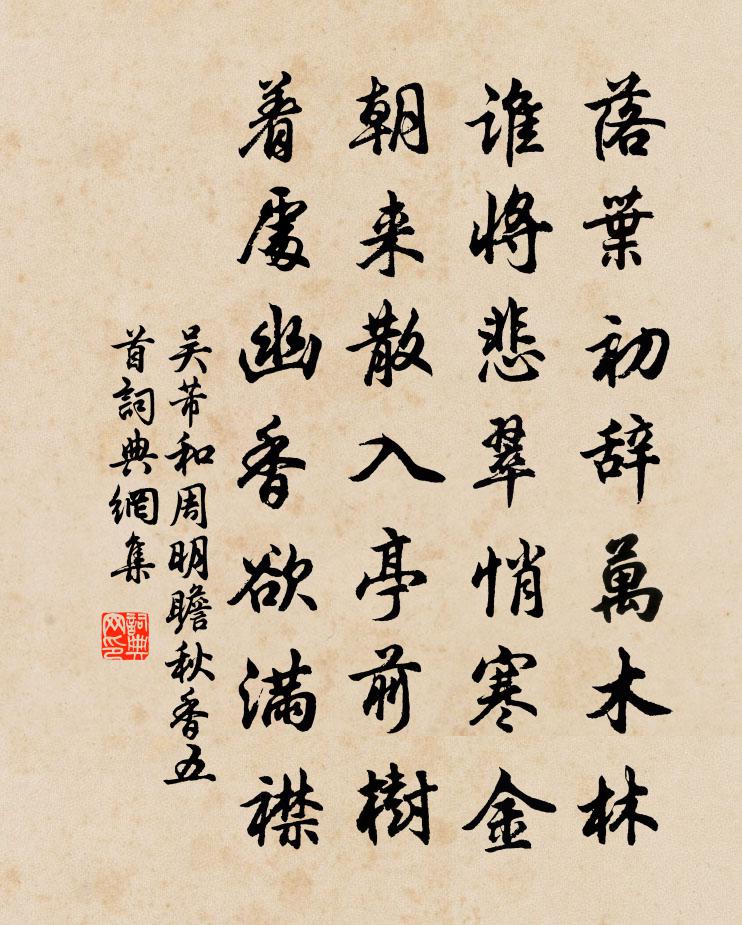 落葉初辞萬木林
誰将悲翠悄寒金
朝来散入亭前樹
着處幽香欲满襟
吴芾和周明瞻秋香五
首詞典網集
詞典網印